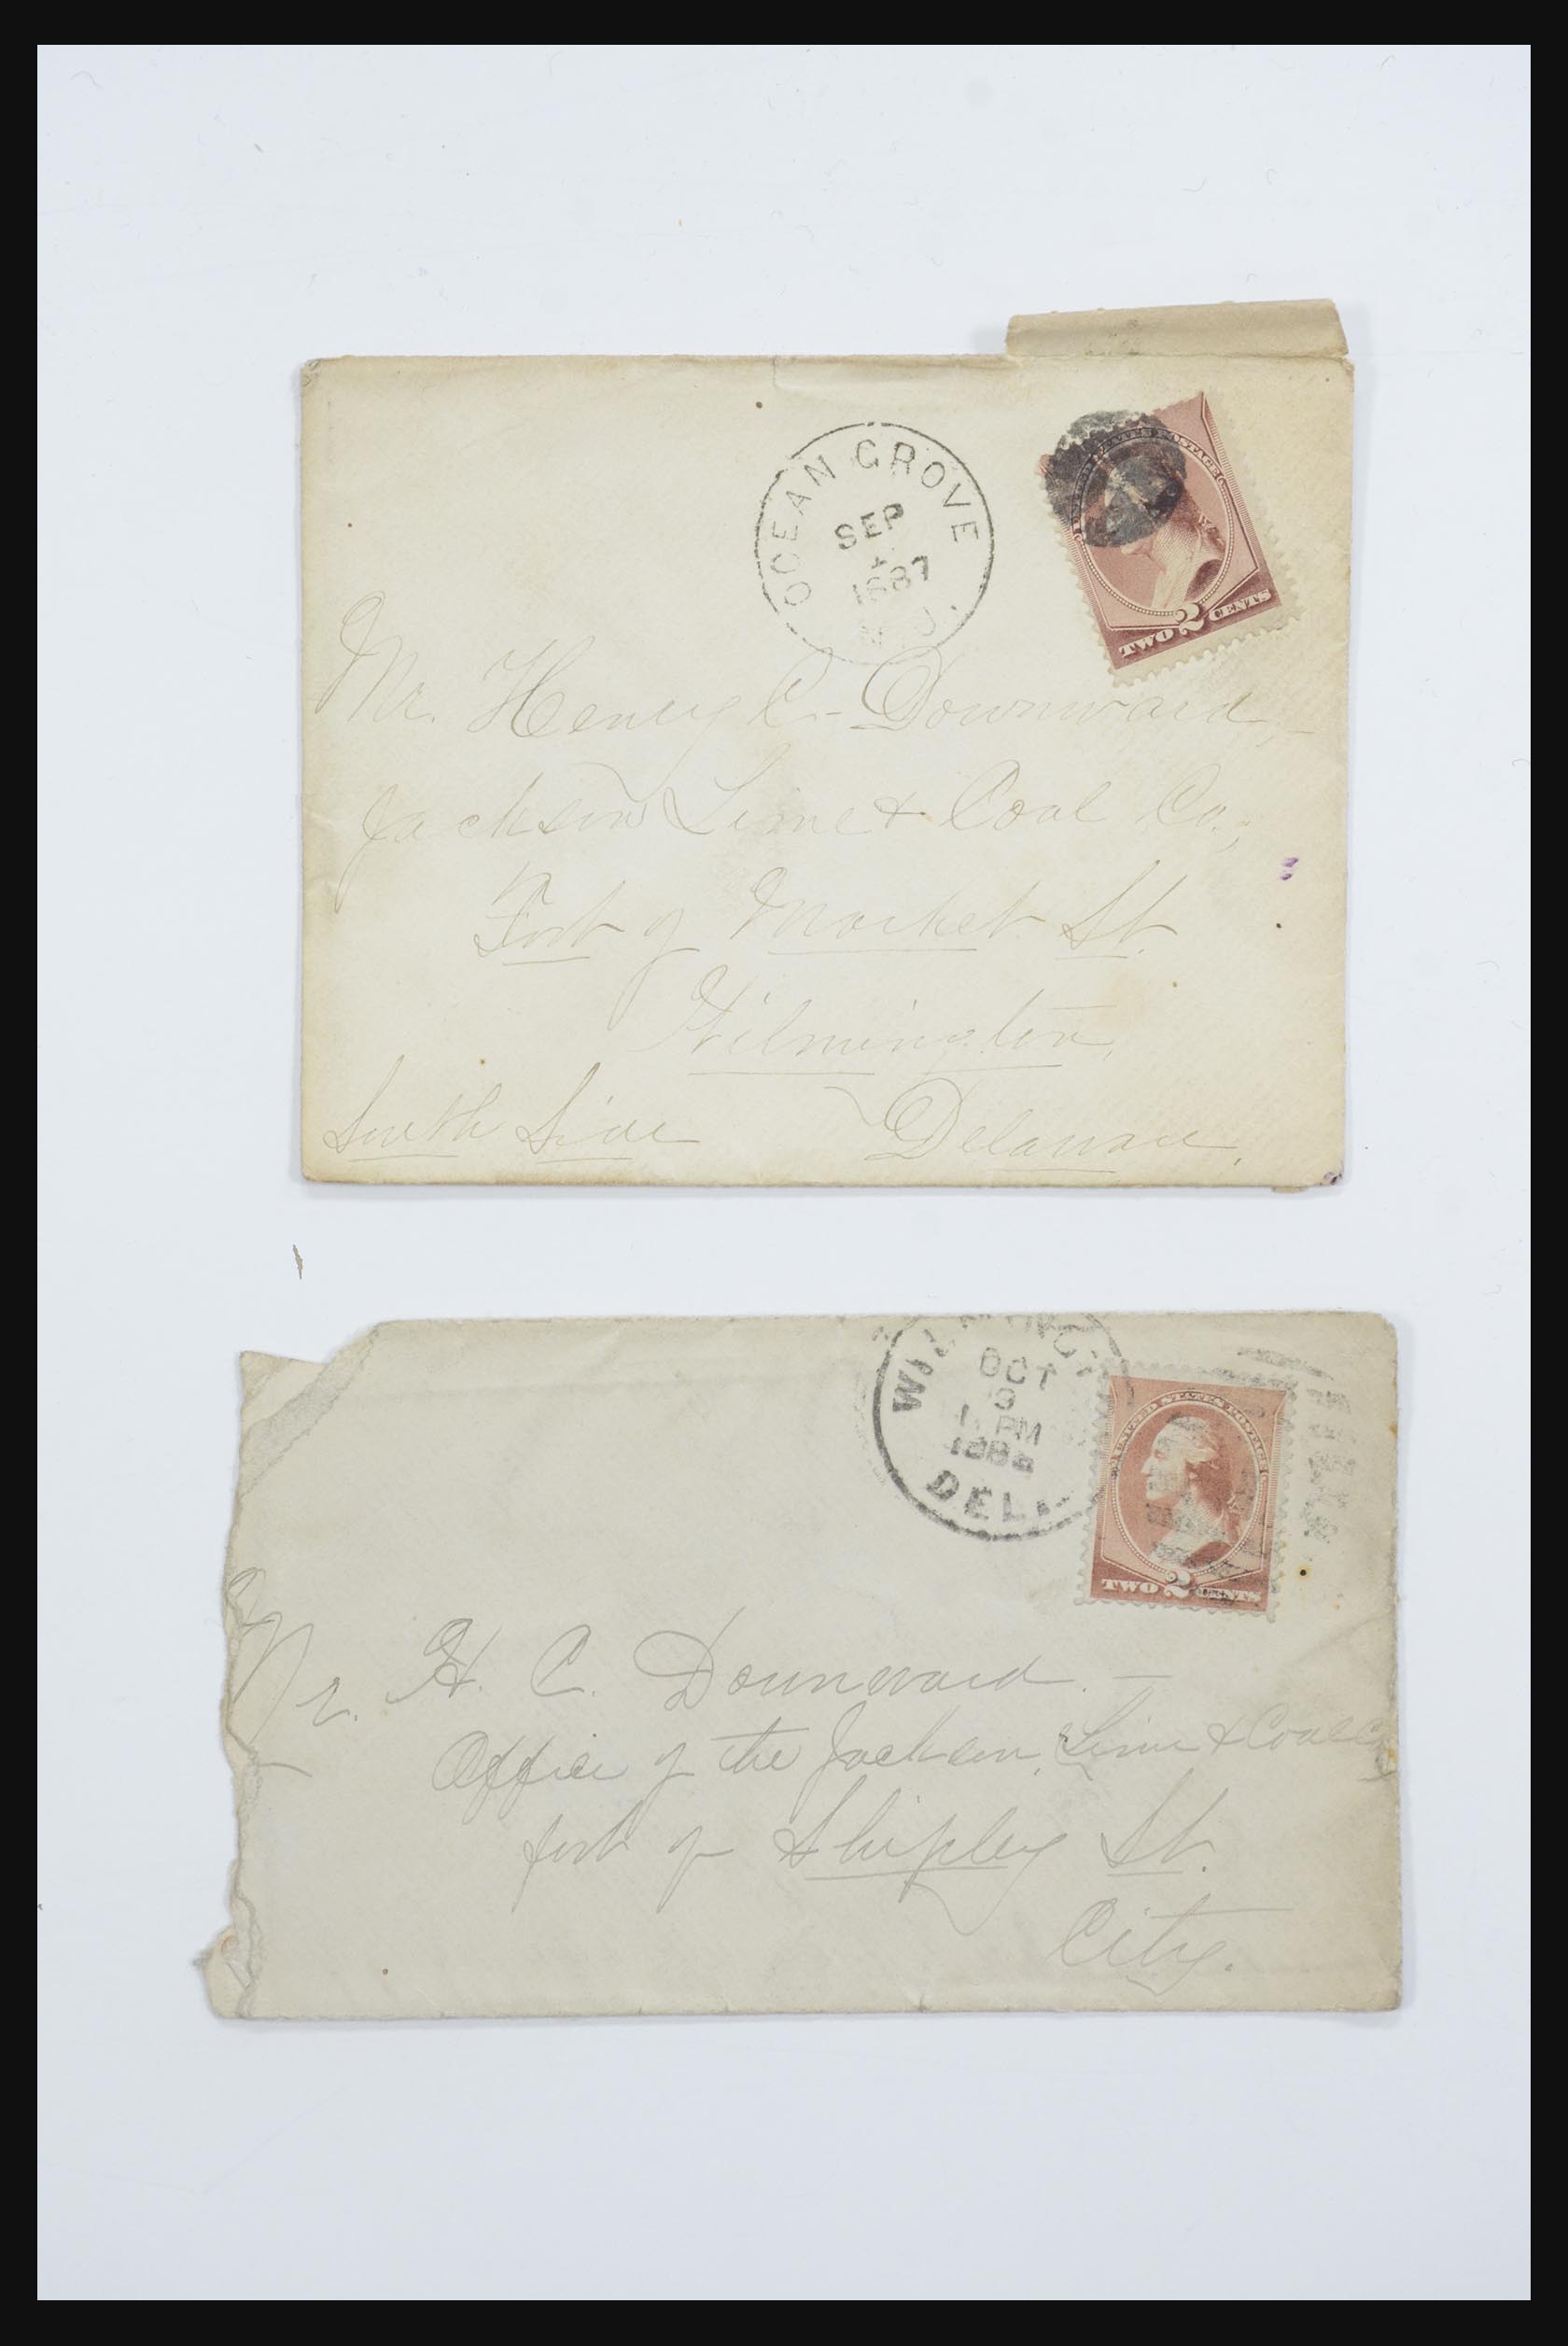 OCEAN GROVE
SEP
1887
N.J.
UNITED STATES POSTAGE
TWO 2 CENTS
Mr. Henry C. Downward,
Jackson Lime & Coal Co.,
Foot of Market St.
Wilmington,
South Side
Delaware.
OCT
9
1 PM
DEL.
UNITED STATES POSTAGE
TWO 2 CENTS
Mr. H. C. Downward.
Office of the Jackson Lime & Coal Co
foot of Shipley St.
City.